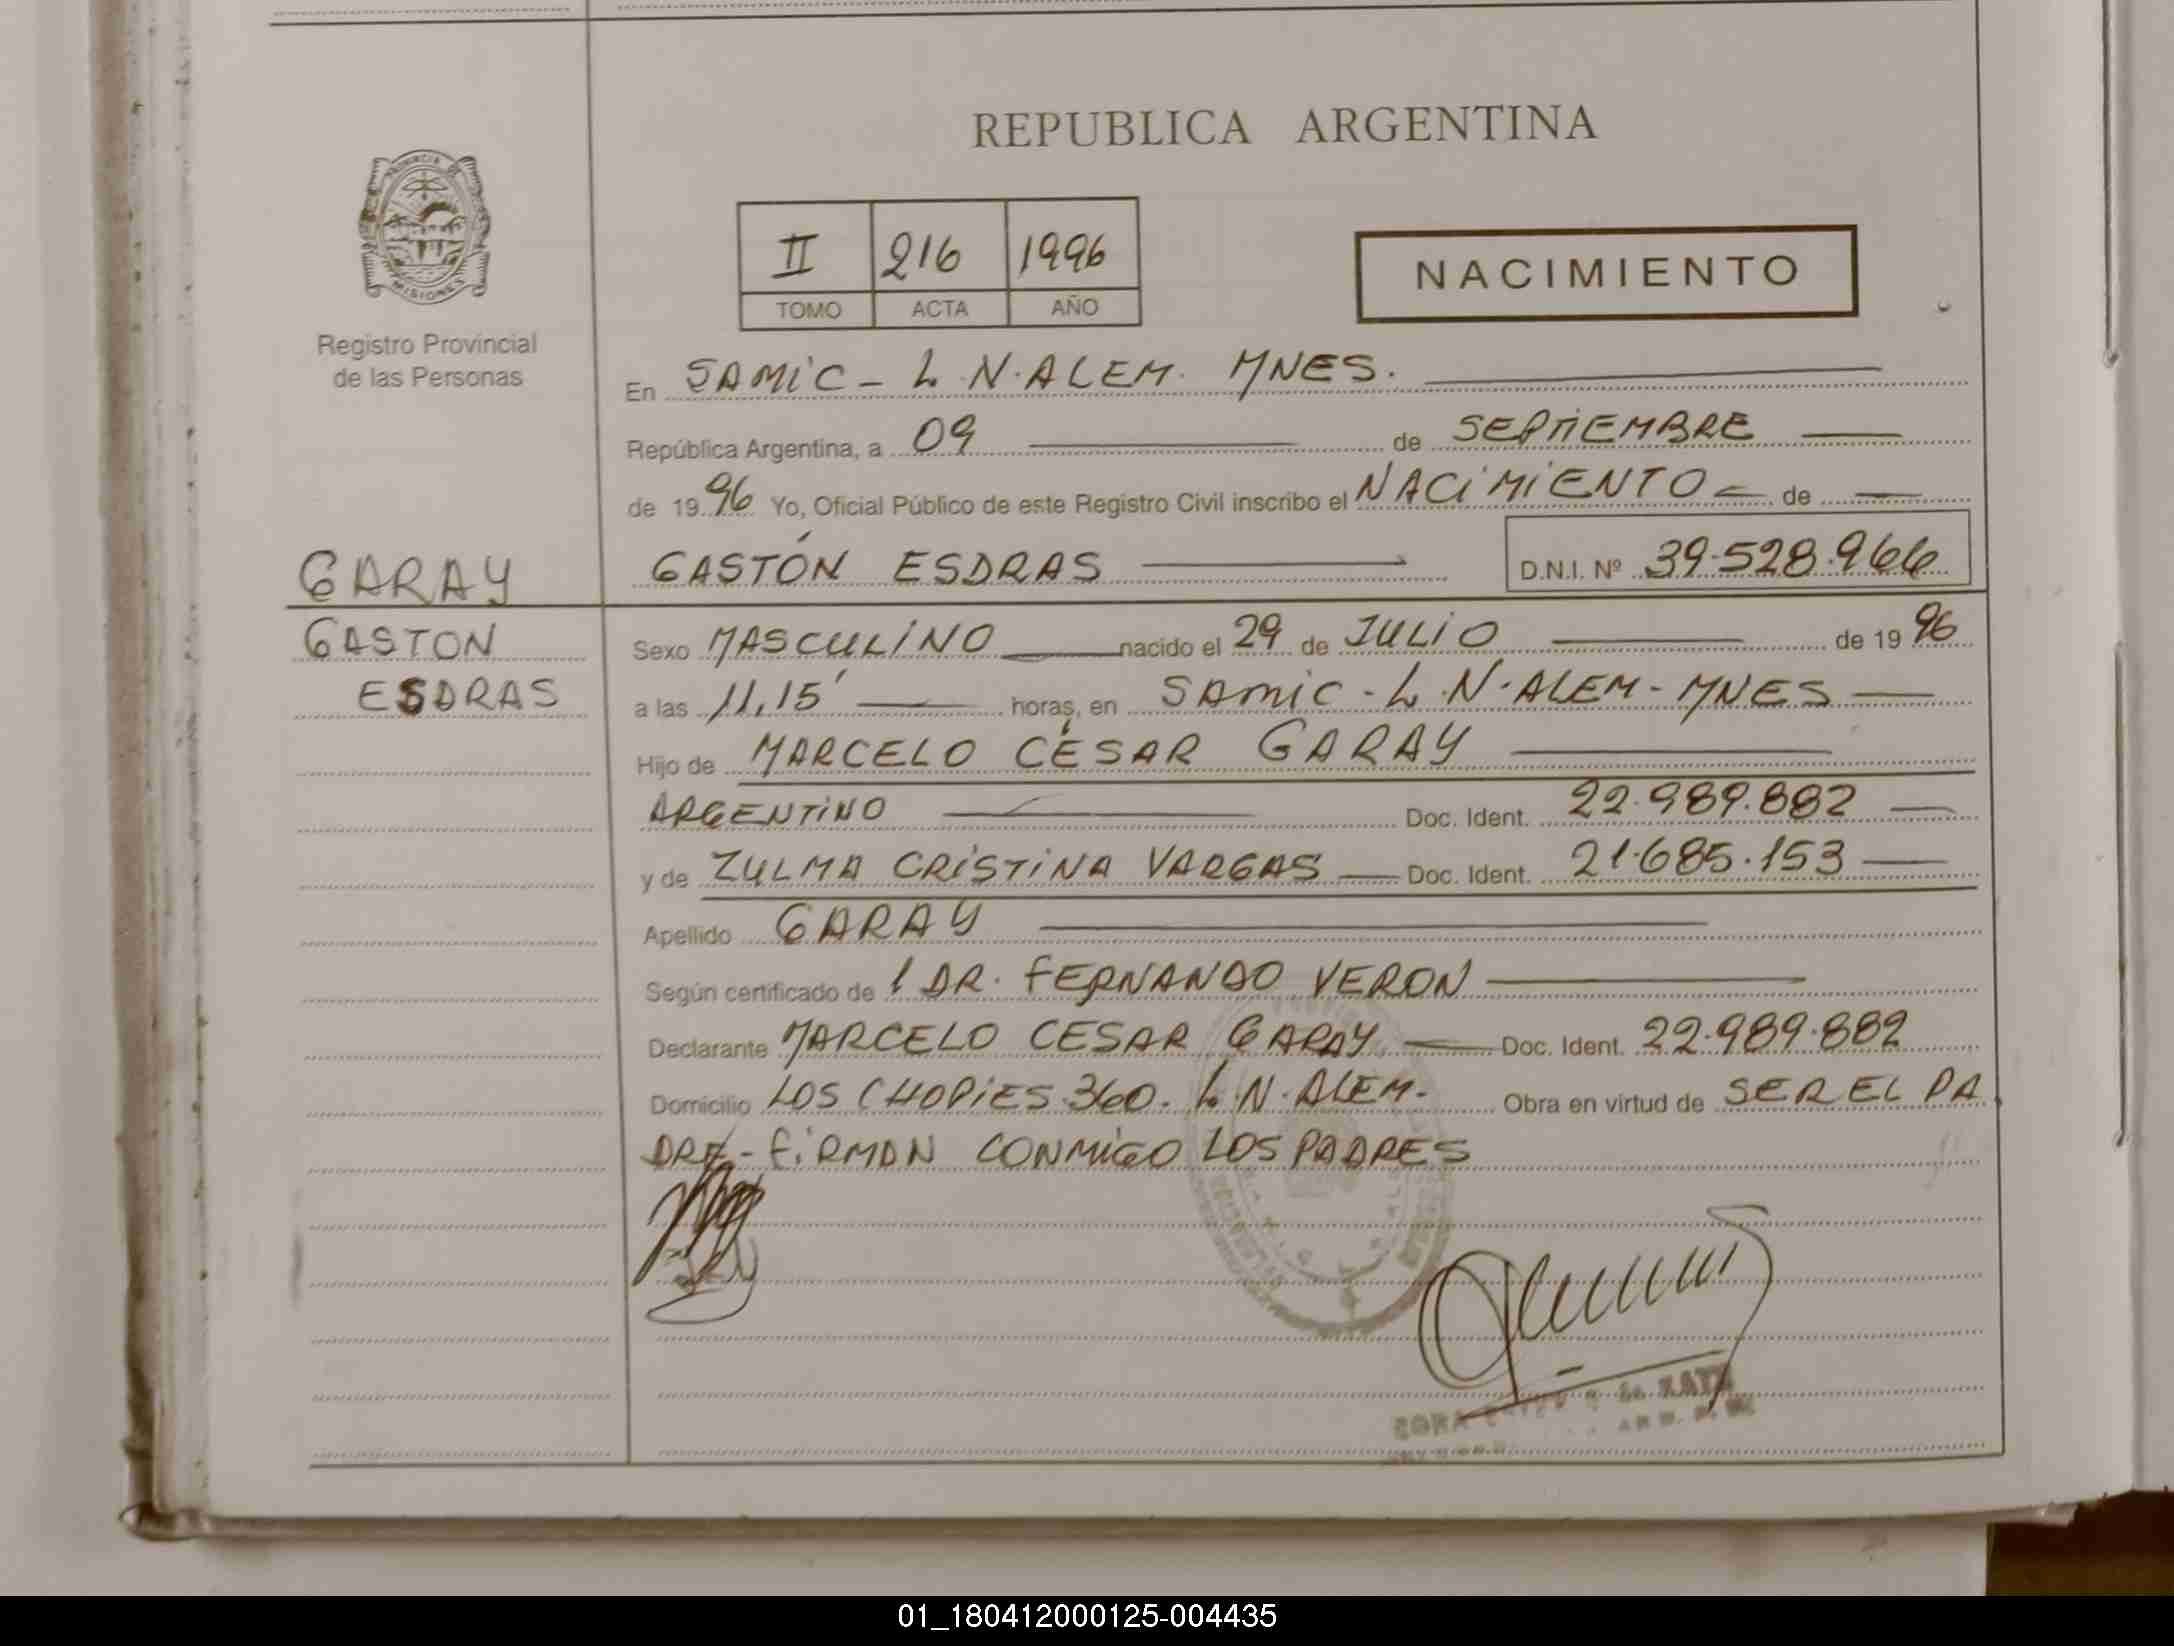 REPUBLICA ARGENTINA
PROVINCIA DE
MISIONES
Registro Provincial
de las Personas
II 216 1996
TOMO ACTA AÑO
NACIMIENTO
En SAMIC - L.N.ALEM. MNES.
República Argentina, a 09 de SEPTIEMBRE
de 19 96 Yo, Oficial Público de este Registro Civil inscribo el NACIMIENTO de
GARAY
GASTÓN ESDRAS D.N.I. Nº 39.528.966
GASTON
ESDRAS
Sexo MASCULINO nacido el 29 de JULIO de 19 96
a las 11,15' horas, en SAMIC - L.N-ALEM - MNES
Hijo de MARCELO CÉSAR GARAY
ARGENTINO Doc. Ident. 22.989.882
y de ZULMA CRISTINA VARGAS Doc. Ident. 21.685.153
Apellido GARAY
Según certificado de l DR. FERNANDO VERON
Declarante MARCELO CESAR GARAY Doc. Ident. 22.989.882
Domicilio LOS CHOPIES 360. L.N.ALEM. Obra en virtud de SER EL PA
DRE - FIRMAN CONMIGO LOS PADRES
01_180412000125-004435